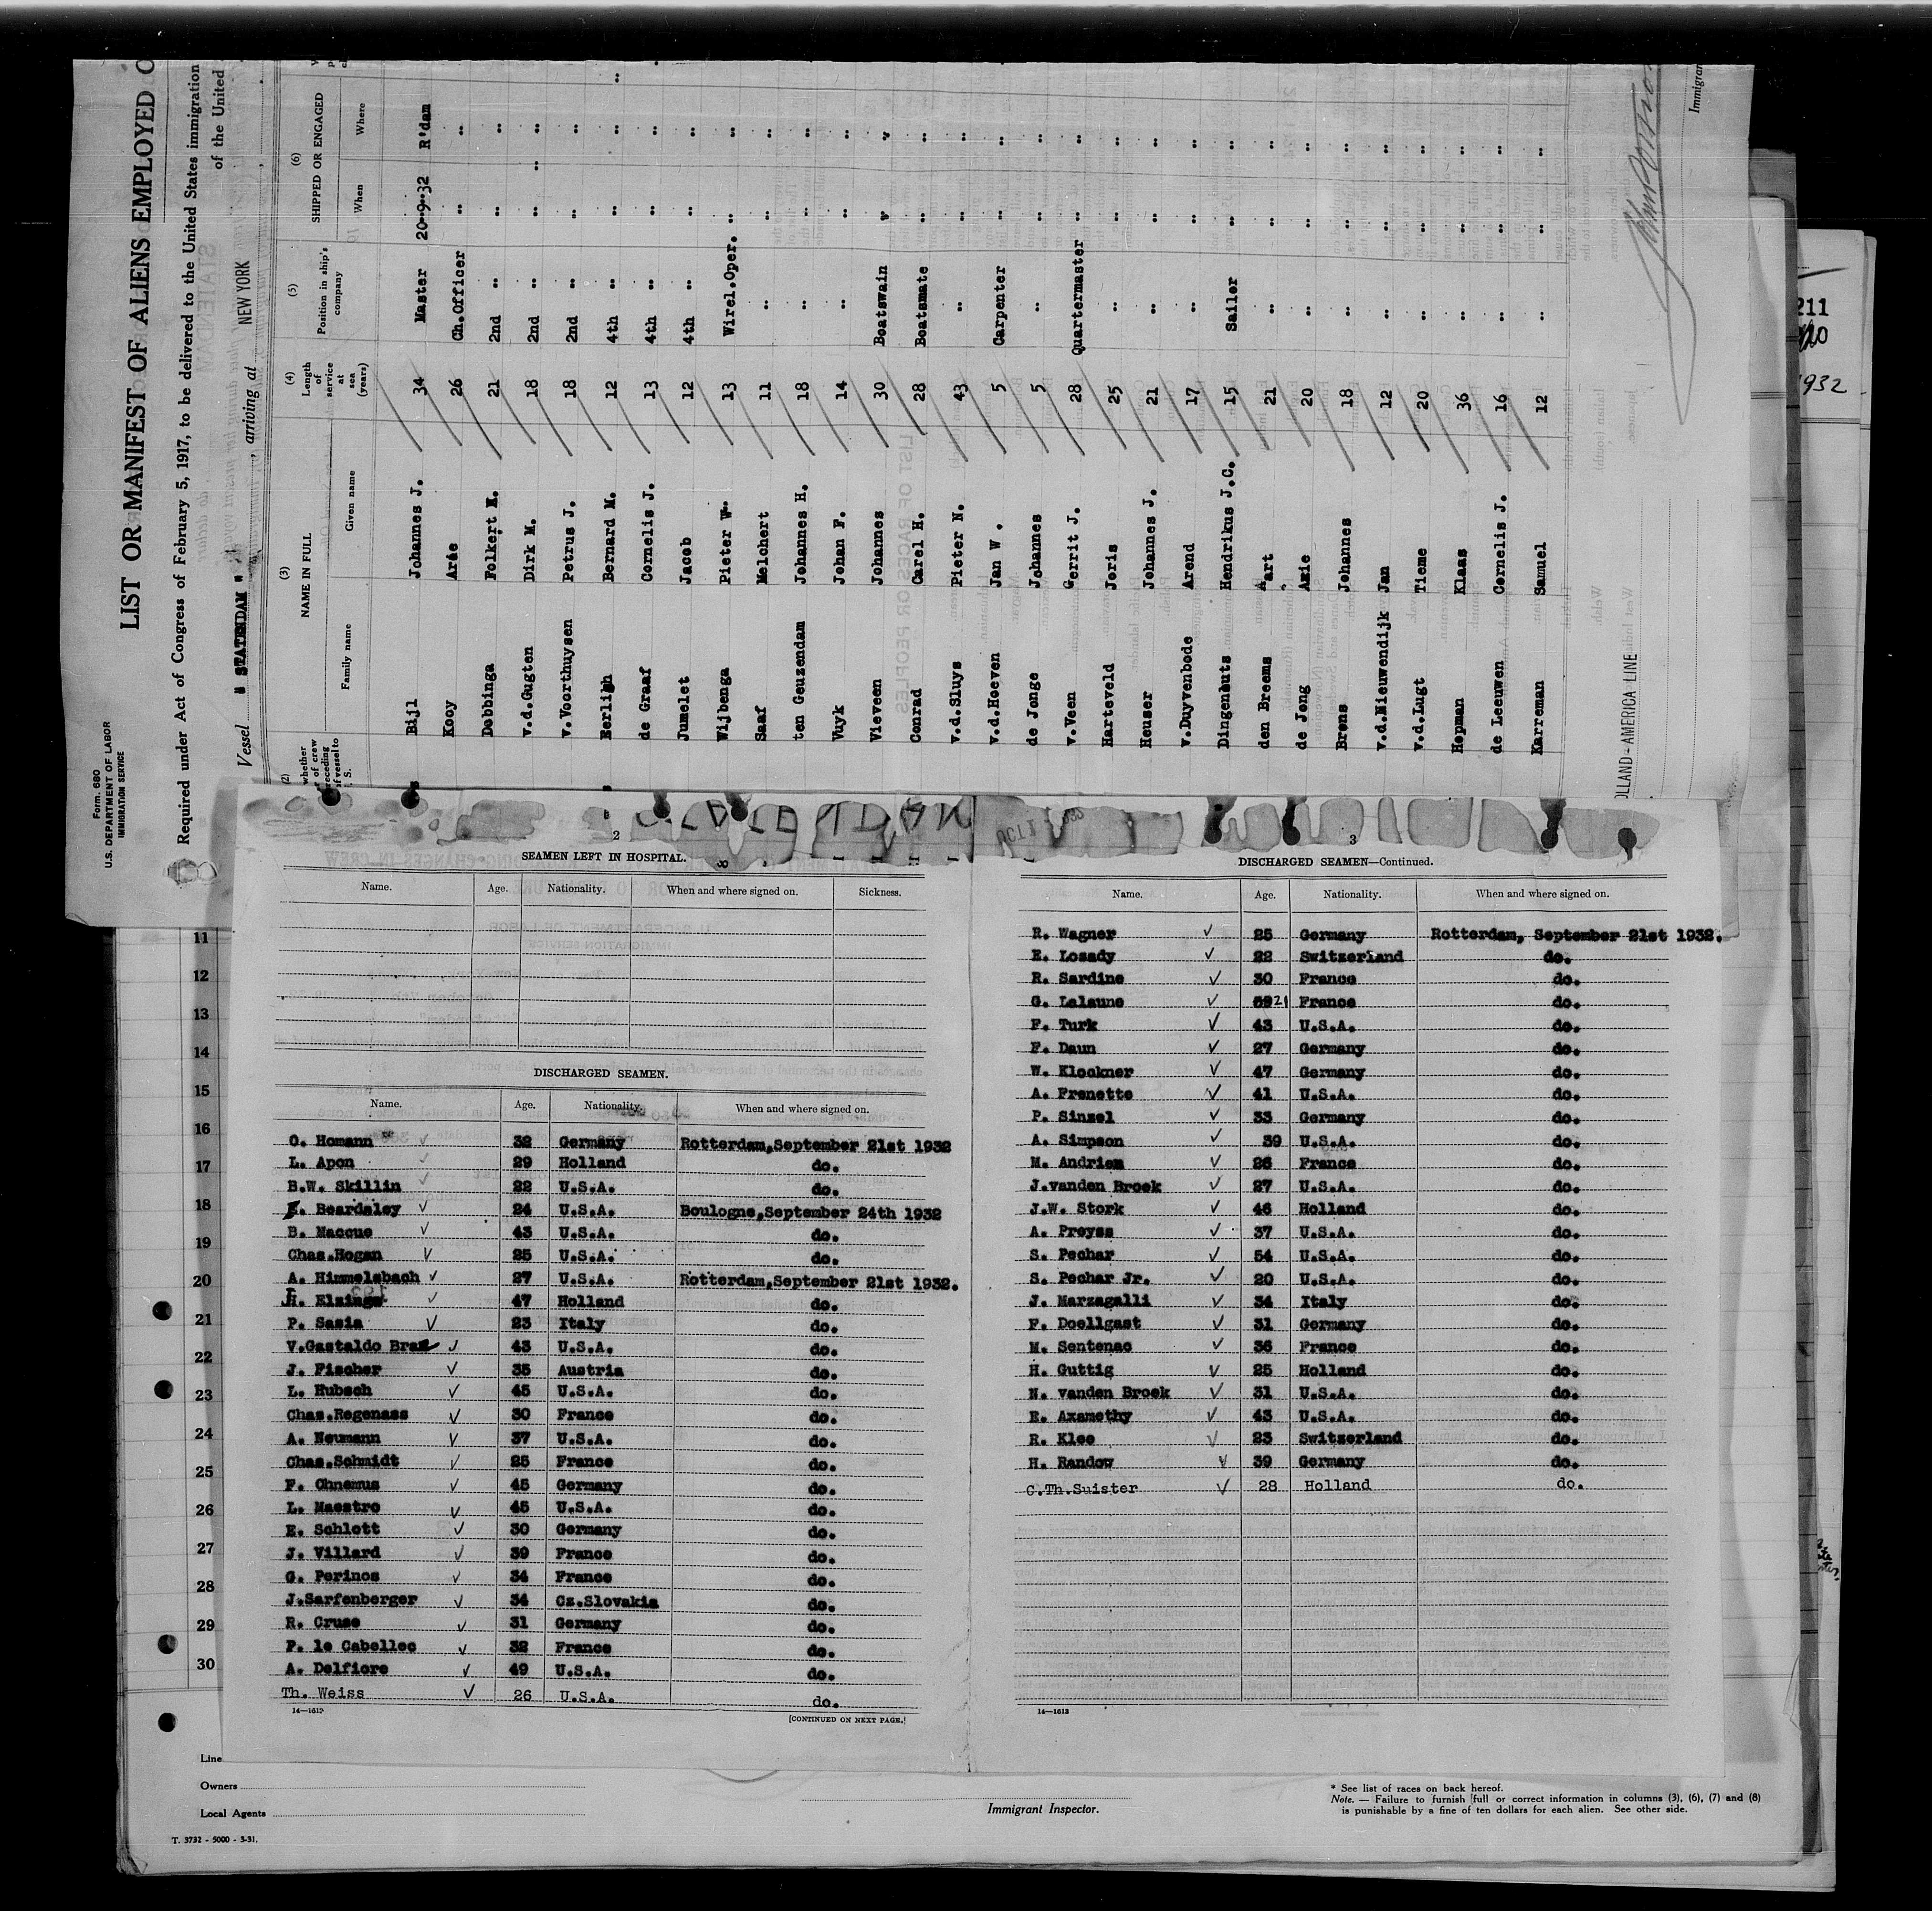 Form 680
U.S. DEPARTMENT OF LABOR
IMMIGRATION SERVICE
LIST OR MANIFEST OF ALIENS EMPLOYED O
Required under Act of Congress of February 5, 1917, to be delivered to the United States immigration
of the United
Vessel " STATENDAM " , arriving at NEW YORK ,
(2) (3) (4) (5) (6)
NAME IN FULL Length of service at sea (years) Position in ship's company SHIPPED OR ENGAGED
whether
of crew
receding
of vessel to
. S.
Family name Given name When Where
Bijl Johannes J. 34 Master 20-9-32 R'dam
Kooy Arie 26 Ch.Officer " "
Dobbinga Folkert K. 21 2nd " " "
v.d.Gugten Dirk M. 18 2nd " " "
v.Voorthuysen Petrus J. 18 2nd " " "
Bernard M. 12 4th " " "
de Graaf Cornelis J. 13 4th " " "
Jumelet Jacob 12 4th " " "
Wijbenga Pieter W. 13 Wirel.Oper. " "
Saaf Melchert 11 " " "
ten Geuzendam Johannes H. 18 " " "
Vuyk Johan F. 14 " " "
Vieveen Johannes 30 Boatswain " "
Conrad Carel H. 28 Boatsmate " "
v.d.Sluys Pieter N. 43 " " "
v.d.Hoeven Jan W. 5 Carpenter " "
de Jonge Johannes 5 " " "
v.Veen Gerrit J. 28 Quartermaster " "
Harteveld Joris 25 " " "
Heuser Johannes J. 21 " " "
v.Duyvenbode Arend 17 " " "
Dingenouts Hendrikus J.C. 15 Sailer " "
den Breems Aart 21 " " "
de Jong Arie 20 " " "
Brons Johannes 18 " " "
v.d.Nieuwendijk Jan 12 " " "
v.d.Lugt Tieme 20 " " "
Hopman Klaas 36 " " "
de Leeuwen Cornelis J. 16 " " "
Karreman Samuel 12 " " "
OLLAND-AMERICA LINE
Immigran
211
1932
2
SEAMEN LEFT IN HOSPITAL.
Name. Age. Nationality. When and where signed on. Sickness.
DISCHARGED SEAMEN.
Name. Age. Nationality. When and where signed on.
O. Homann 32 Germany Rotterdam,September 21st 1932
L. Apon 29 Holland do.
B.W. Skillin 22 U.S.A. do.
Beardsley 24 U.S.A. Boulogne,September 24th 1932
B. Maccue 43 U.S.A. do.
Chas.Hogan 25 U.S.A. do.
A. Himmelsbach 27 U.S.A. Rotterdam,September 21st 1932.
H. Elzinga 47 Holland do.
P. Sasia 23 Italy do.
V.Gastaldo 43 U.S.A. do.
J. Fischer 35 Austria do.
L. Hubsch 45 U.S.A. do.
Chas.Regenass 30 France do.
A. Neumann 37 U.S.A. do.
Chas.Schmidt 25 France do.
F. Ohnemus 45 Germany do.
L. Maestro 45 U.S.A. do.
E. Schlott 30 Germany do.
J. Villard 39 France do.
G. Perinos 34 France do.
J.Sarfenberger 34 Cz.Slovakia do.
R. Cruse 31 Germany do.
P. le Cabellec 32 France do.
A. Delfiore 49 U.S.A. do.
Th. Weiss 26 U.S.A. do.
[CONTINUED ON NEXT PAGE.]
3
DISCHARGED SEAMEN—Continued.
Name. Age. Nationality. When and where signed on.
R. Wagner 25 Germany Rotterdam, September 21st 1932.
E. Losady 22 Switzerland do.
R. Sardine 30 France do.
G. Lalaune 21 France do.
F. Turk 43 U.S.A. do.
F. Daun 27 Germany do.
W. Klockner 47 Germany do.
A. Frenette 41 U.S.A. do.
P. Sinzel 33 Germany do.
A. Simpson 39 U.S.A. do.
M. Andrien 26 France do.
J.vanden Broek 27 U.S.A. do.
J.W. Stork 46 Holland do.
A. Preyss 37 U.S.A. do.
S. Pechar 54 U.S.A. do.
S. Pechar Jr. 20 U.S.A. do.
J. Marzagalli 34 Italy do.
F. Doellgast 31 Germany do.
M. Sentenac 36 France do.
H. Guttig 25 Holland do.
N. vanden Broek 31 U.S.A. do.
E. Axamethy 43 U.S.A. do.
R. Klee 23 Switzerland do.
H. Randow 39 Germany do.
C.Th.Suister 28 Holland do.
14—1613
11
12
13
14
15
16
17
18
19
20
21
22
23
24
25
26
27
28
29
30
Line
Owners
Local Agents
T. 3732 - 5000 - 3-31.
Immigrant Inspector.
* See list of races on back hereof.
Note. — Failure to furnish full or correct information in columns (3), (6), (7) and (8)
is punishable by a fine of ten dollars for each alien. See other side.